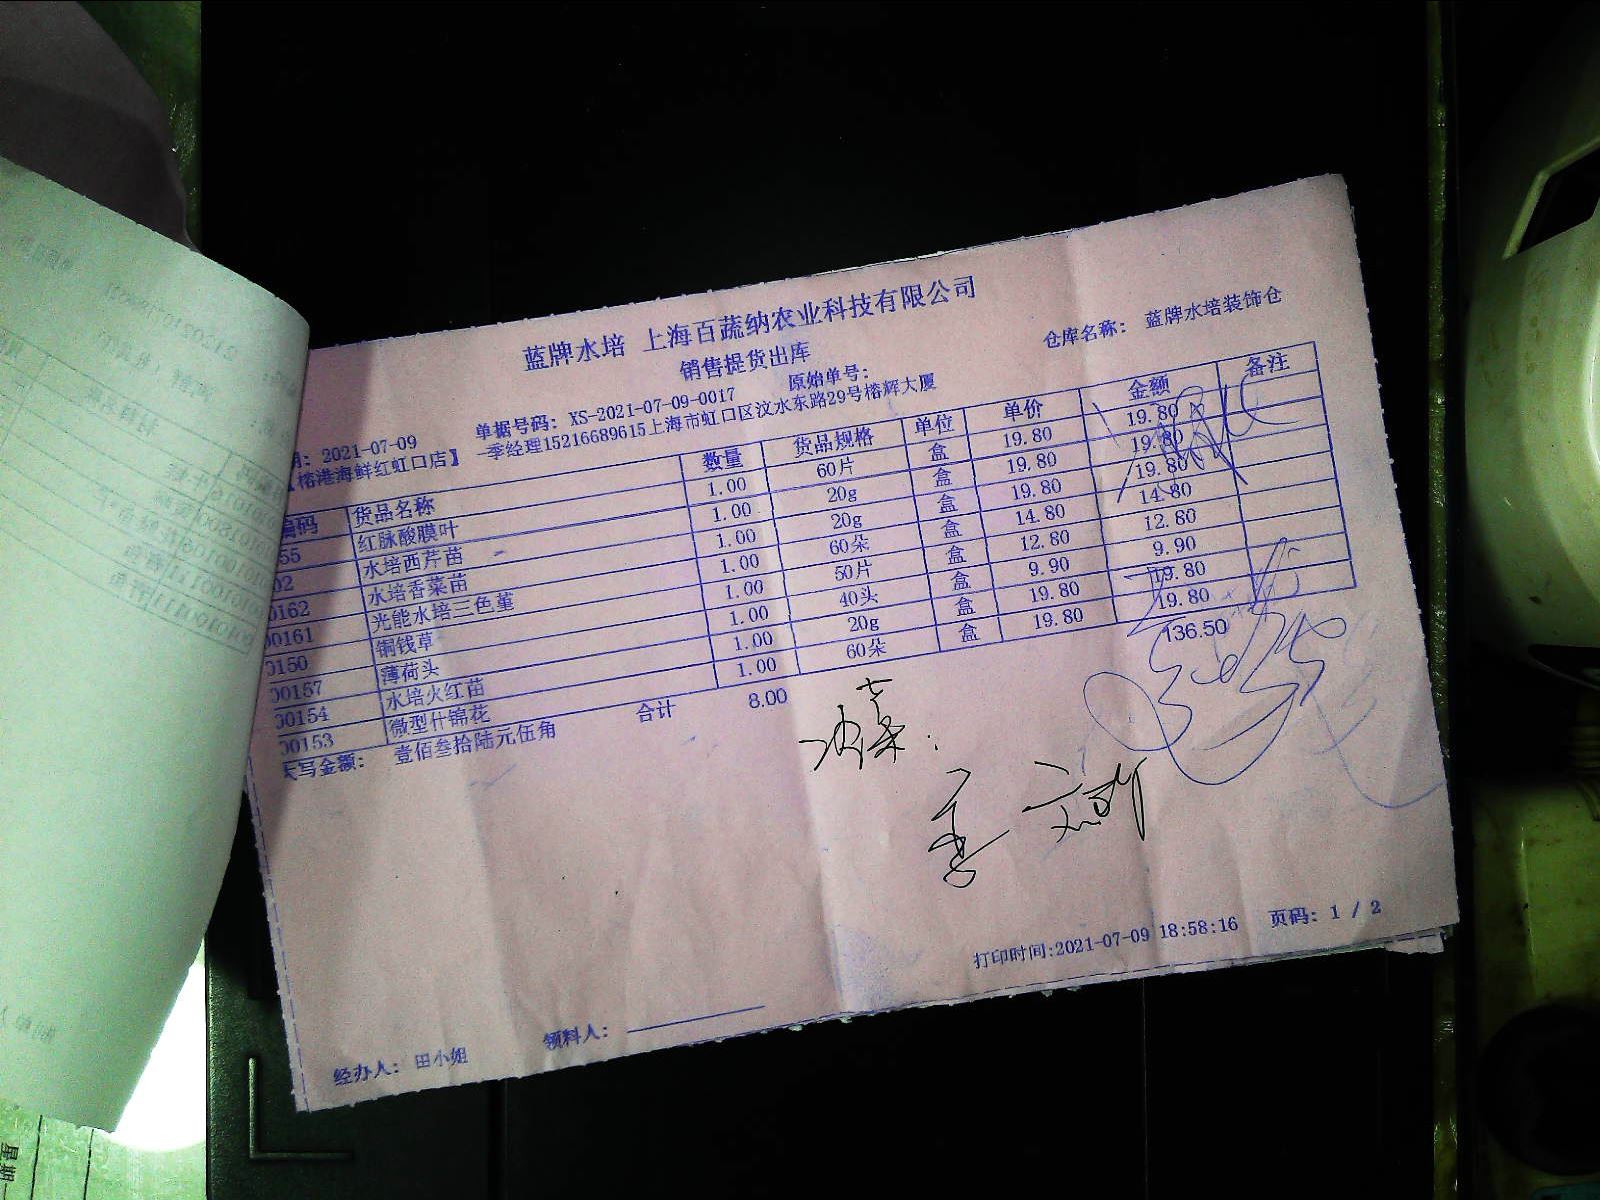 蓝牌水培 上海百蔬纳农业科技有限公司
销售提货出库
仓库名称: 蓝牌水培装饰仓
期: 2021-07-09 单据号码: XS-2021-07-09-0017 原始单号:
【榕港海鲜红虹口店】 季经理15216689615上海市虹口区汶水东路29号榕辉大厦
编码 货品名称 数量 货品规格 单位 单价 金额 备注
55 红脉酸膜叶 1.00 60片 盒 19.80 19.80
02 水培西芹苗 1.00 20g 盒 19.80 19.80
00162 水培香菜苗 1.00 20g 盒 19.80 19.80
00161 光能水培三色堇 1.00 60朵 盒 14.80 14.80
0150 铜钱草 1.00 50片 盒 12.80 12.80
00157 薄荷头 1.00 40头 盒 9.90 9.90
00154 水培火红苗 1.00 20g 盒 19.80 19.80
00153 微型什锦花 1.00 60朵 盒 19.80 19.80
合计 8.00 136.50
大写金额: 壹佰叁拾陆元伍角
打印时间:2021-07-09 18:58:16 页码: 1 / 2
经办人: 田小姐 领料人: